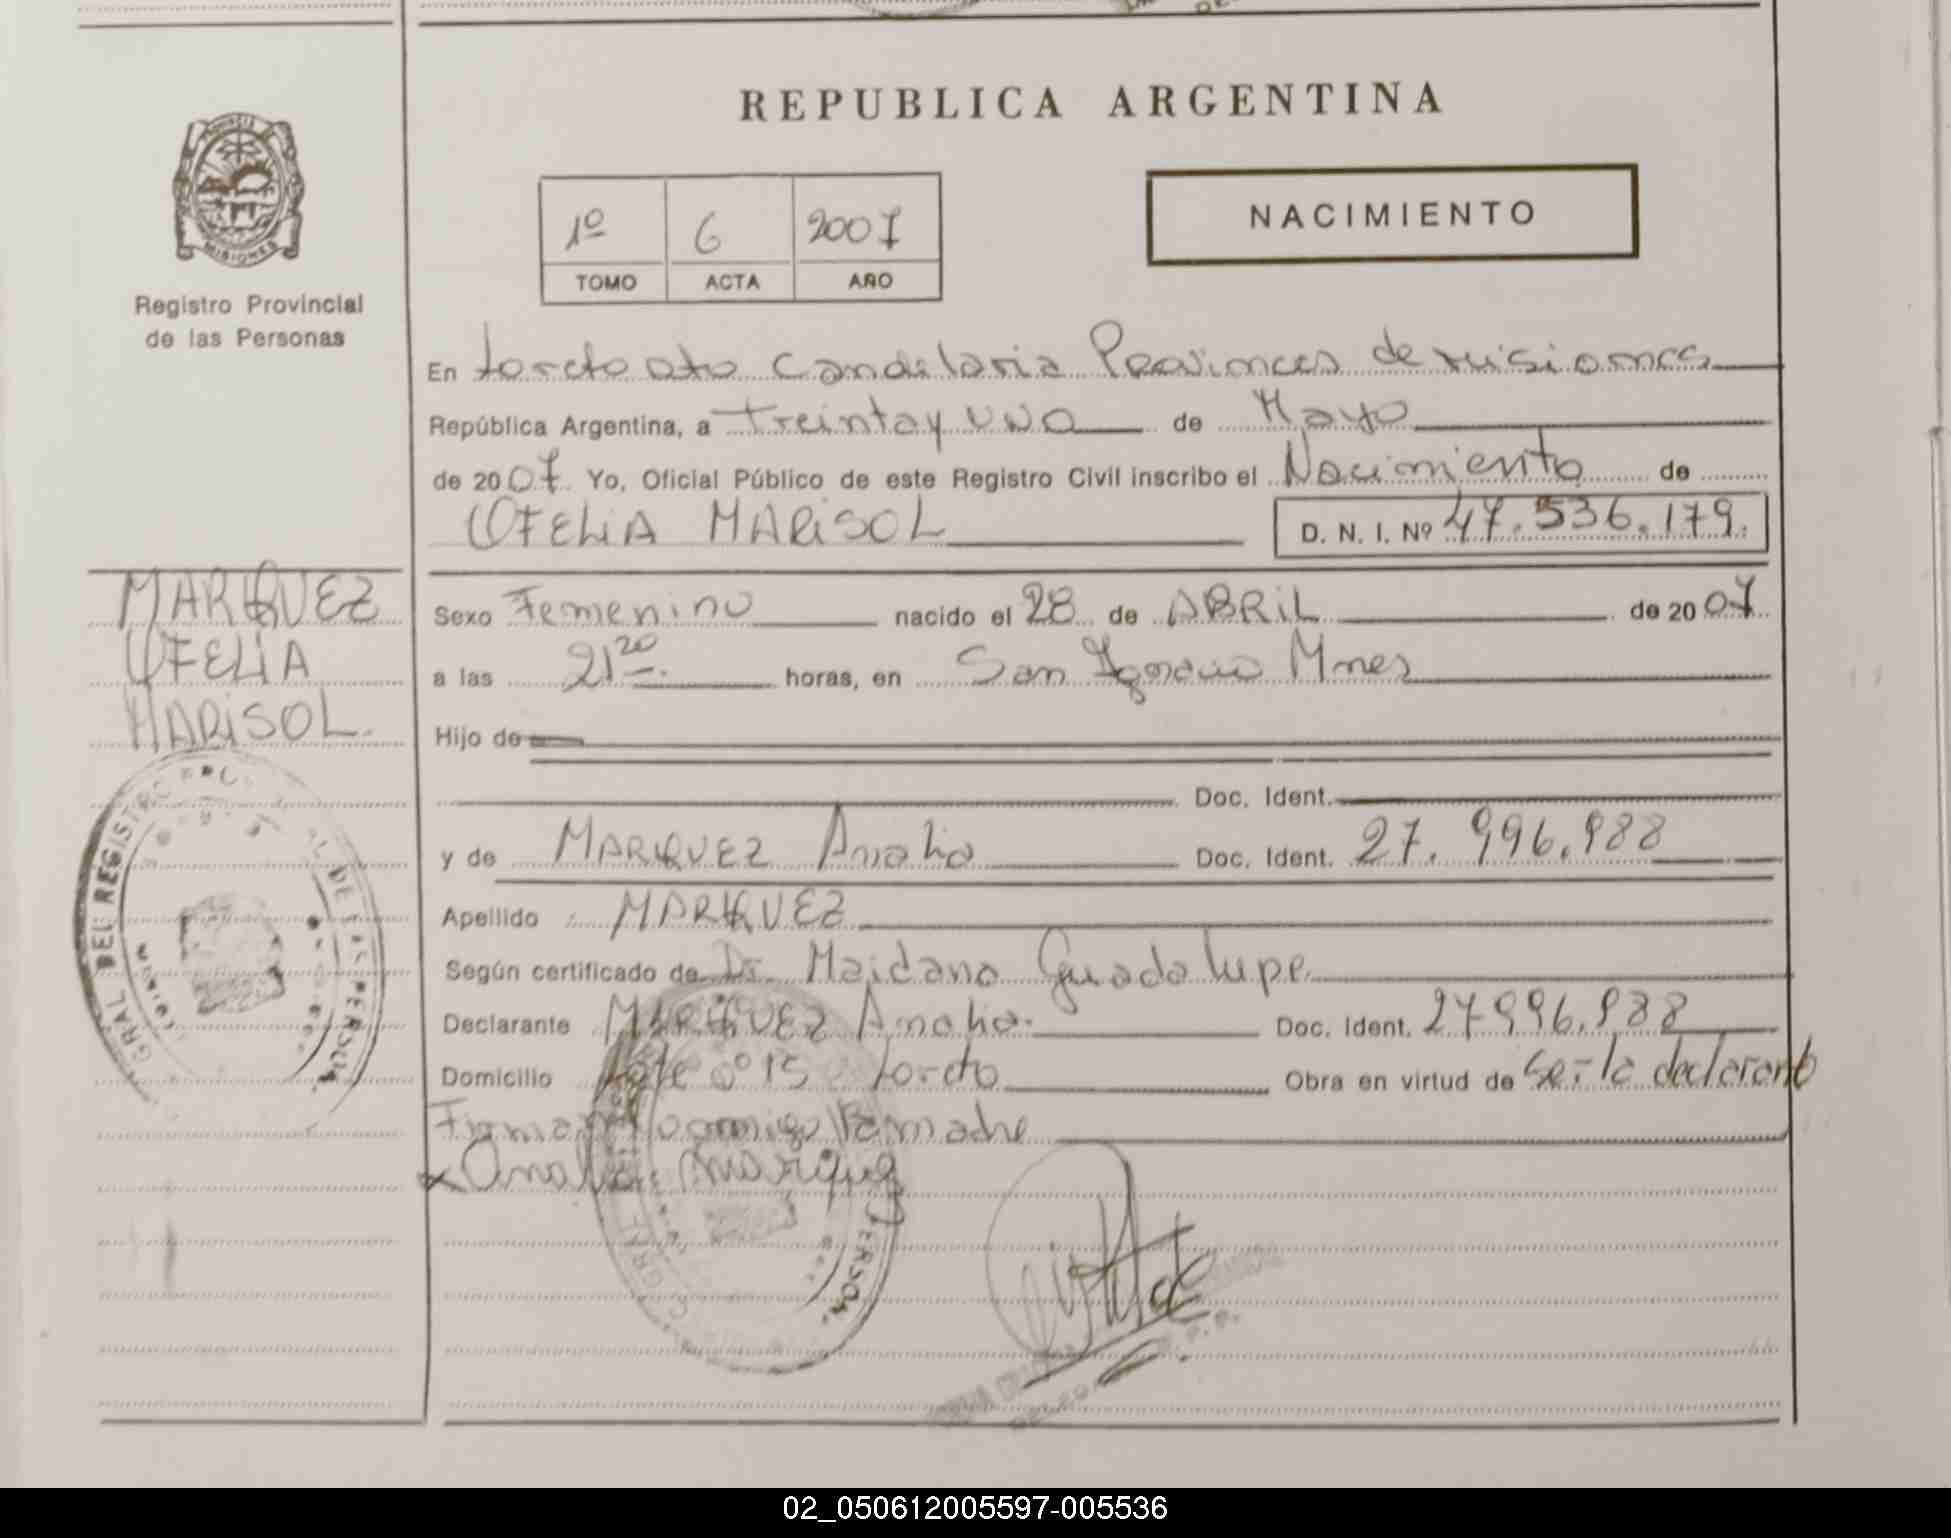 REPUBLICA ARGENTINA
PROVINCIA DE
MISIONES
Registro Provincial
de las Personas
1º 6 2007
TOMO ACTA AÑO
NACIMIENTO
En Loreto Dto Candelaria Provincia de Misiones
República Argentina, a Treinta y uno de Mayo
de 2007 Yo, Oficial Público de este Registro Civil inscribo el Nacimiento de
OFELIA MARISOL D. N. I. Nº 47.536.179.
MARQUEZ
OFELIA
MARISOL.
Sexo Femenino nacido el 28 de ABRIL de 2007
a las 21 20 horas, en San Ignacio Mnes
Hijo de
Doc. Ident.
y de MARQUEZ Analia Doc. Ident. 27.996.988
Apellido MARQUEZ
Según certificado de Dr. Maidana Guadalupe
Declarante MARQUEZ Analia. Doc. Ident. 27996.988
Domicilio Lote nº 15 Loreto Obra en virtud de Ser la declarante
Firman conmigo la madre
x Analia Marquez
GRAL DEL REGISTRO DE LAS PERSON
PERSON
02_050612005597-005536